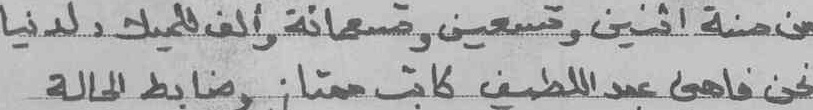 من سنة اثنين وتسعين وتسعمائة وألف للميلاد ولدنيا
نحن فاهي عبد اللطيف كاتب ممتاز وضابط الحالة